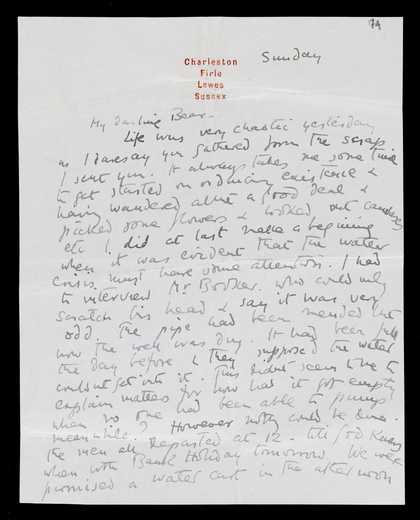 79
Charleston
Firle
Lewes
Sussex
Sunday
My darling Bear.
Life was very chaotic yesterday
as I daresay you gathered from the scrap
I sent you. It always takes me some time
to get started on ordinary existence &
having wandered about a good deal &
picked some flowers & looked out
etc I did at last make a begining
when it was evident that the water
crisis must have some attention. I had
to interview Mr Booker. who could only
scratch his head & say it was very
odd. the pipe had been mended but
now the well was dry. It had been full
the day before & they supposed the water
couldn't get into it. This didn't seem to me to
explain matters for how had it got empty
when no one had been able to pump
meanwhile? However nothing could be done.
the men all departed at 12 - till God knows
when with Bank Holiday tomorrow. We were
promised a water cart in the afternoon